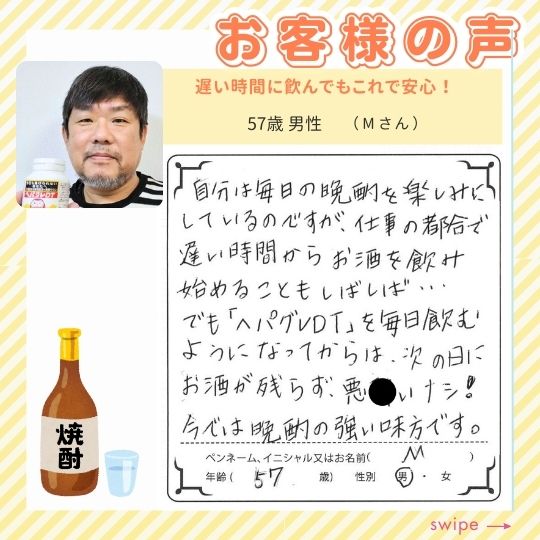 お客様の声
遅い時間に飲んでもこれで安心！
57歳 男性 （Mさん）
自分は毎日の晩酌を楽しみに
しているのですが、仕事の都合で
遅い時間からお酒を飲み
始めることもしばしば…
でも「ヘパグレDT」を毎日飲む
ようになってからは、次の日に
お酒が残らず、悪 いナシ!
今では晩酌の強い味方です。
ペンネーム、イニシャル又はお名前( M )
年齢( 57 歳) 性別 男・女
焼酎
swipe